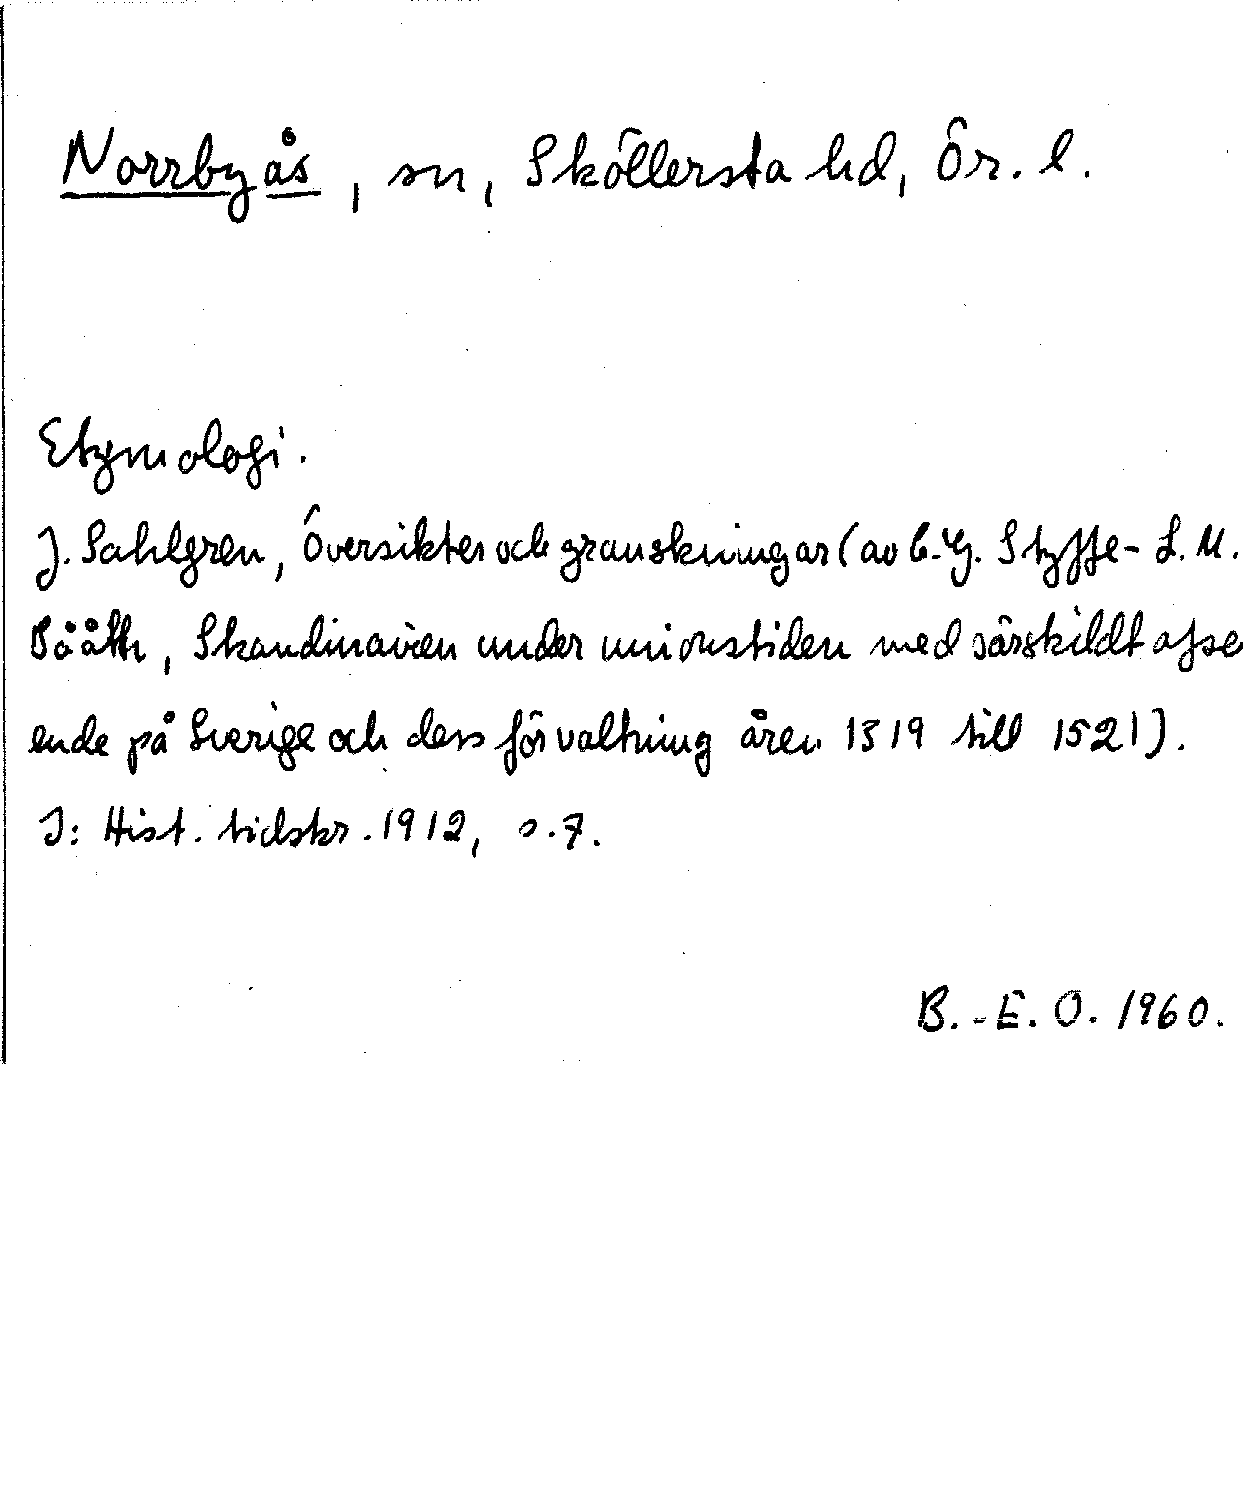 Norrbyås, sn, Sköllersta hd, Ör. l.
Etymologi.
J. Sahlgren, Översikter och granskningar (av C.-G. Styffe - L. M.
Bååth, Skandinavien under unionstiden med särskildt afse
ende på Sverige och dess förvaltning åren 1319 till 1521).
I: Hist. tidskr. 1912, s. 7.
B.-E. O. 1960.